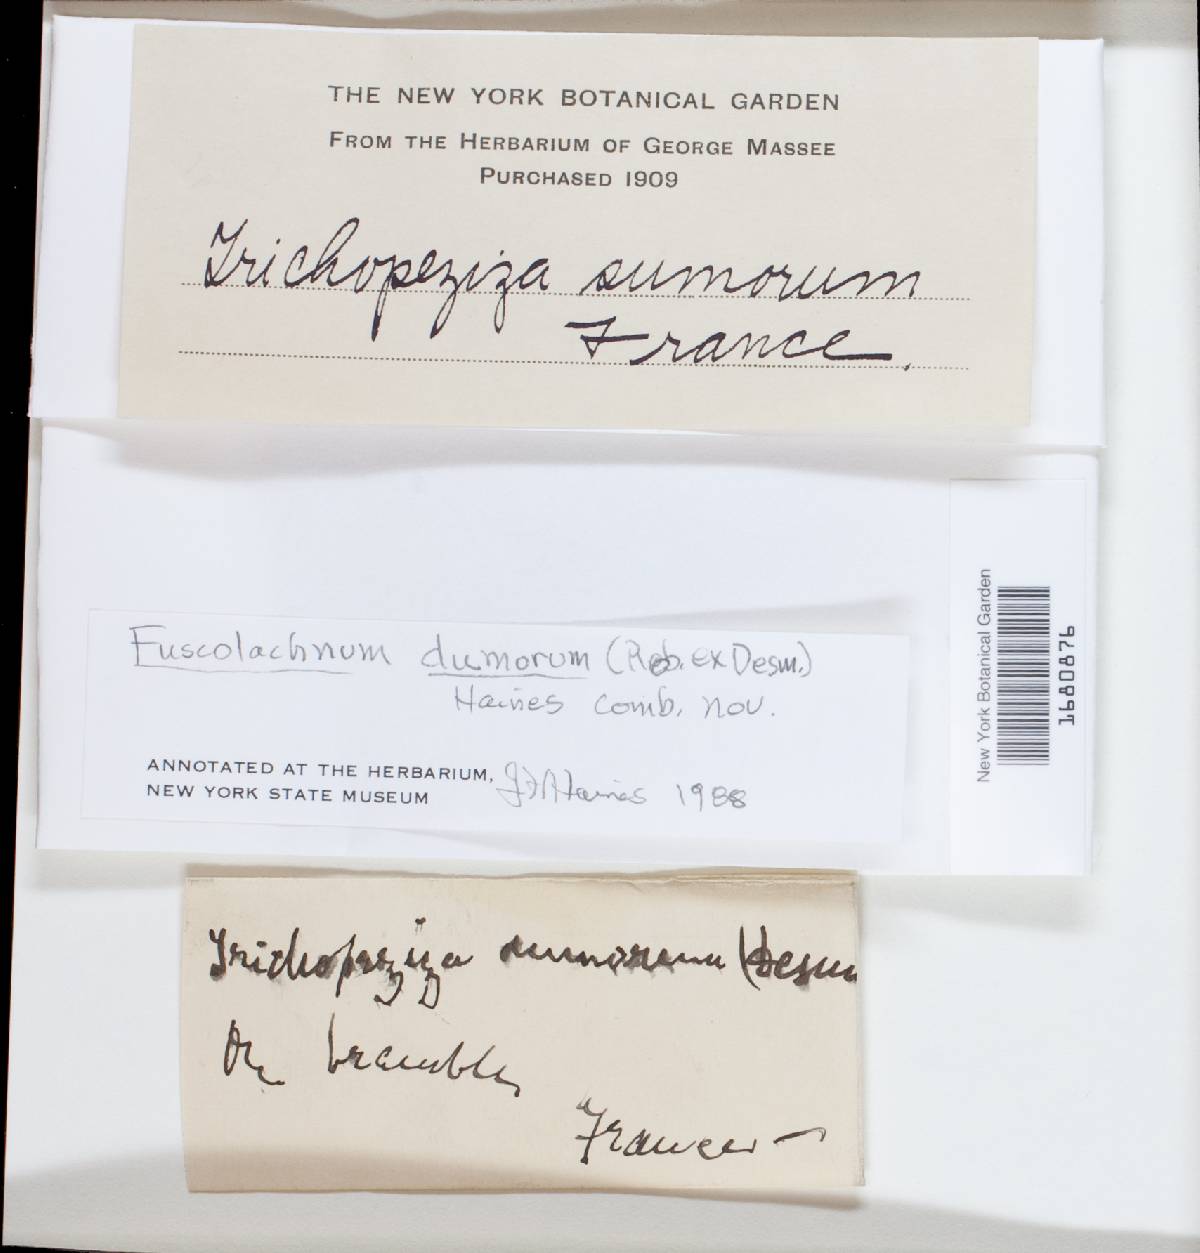 THE NEW YORK BOTANICAL GARDEN
FROM THE HERBARIUM OF GEORGE MASSEE
PURCHASED 1909
Trichopeziza sumorum
France.
Fuscolachnum dumorum (Rob. ex Desm.)
Haines comb. nov.
ANNOTATED AT THE HERBARIUM,
NEW YORK STATE MUSEUM
JHHaines 1988
New York Botanical Garden
1680876
Trichopeziza dumorum (Desm
On brambles
France